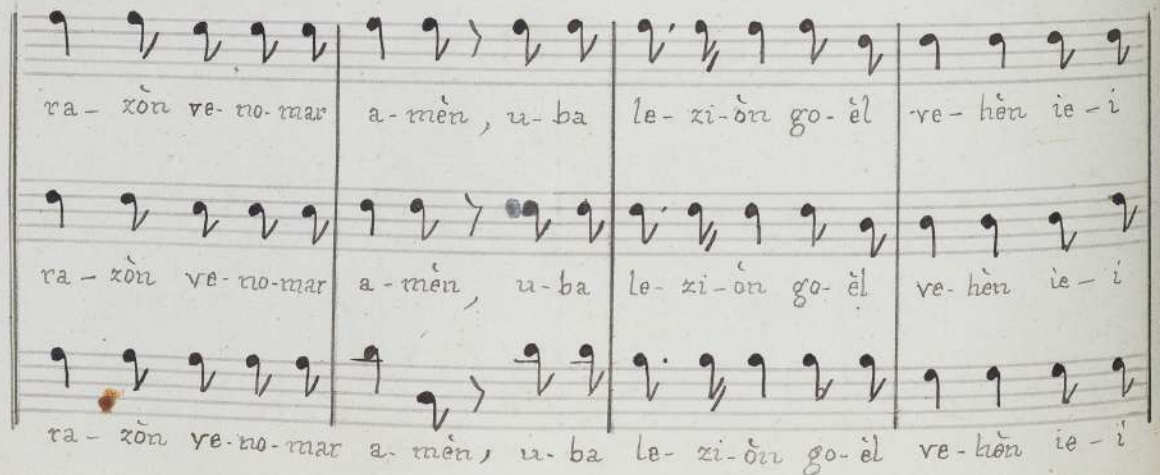 ra - zòn ve - no - mar a - mèn, u - ba le - zi - òn go - èl ve - hèn ie - í
ra - zòn ve - no - mar a - mèn, u - ba le - zi - òn go - èl ve - hèn ie - í
ra - zòn ve - no - mar a - mèn, u - ba le - zi - òn go - èl ve - hèn ie - í